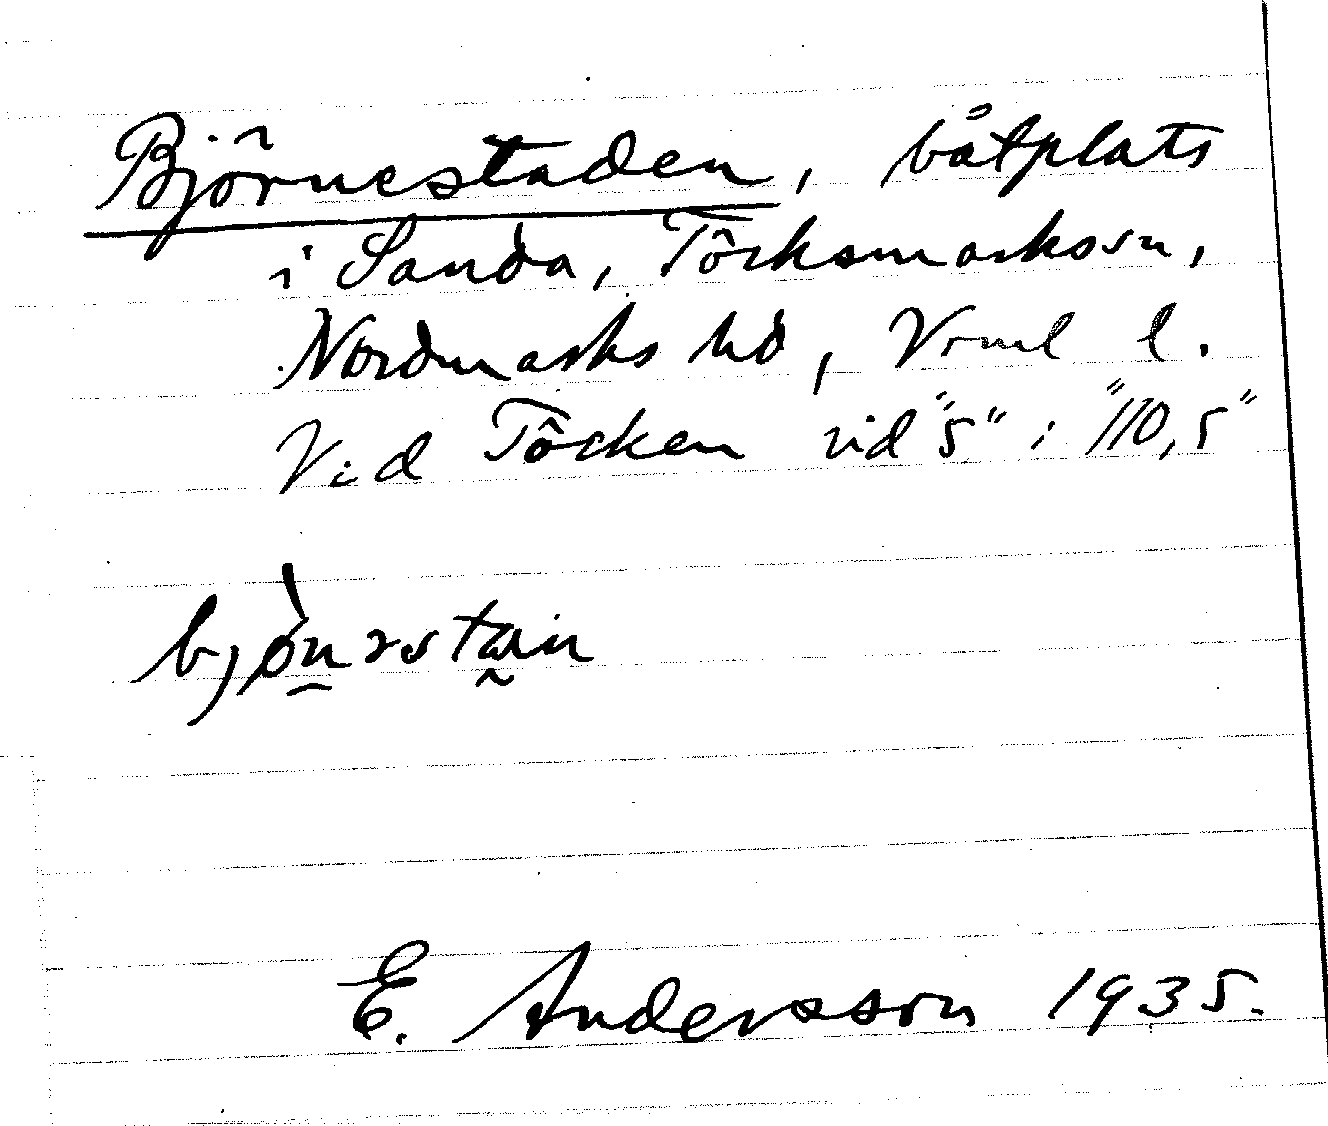 Björnestaden, båtplats
i Sanda, Töcksmarks sn,
Nordmarks hd, Vrml l.
Vid Töcken vid "5" i "110,5"
E. Andersson 1935.